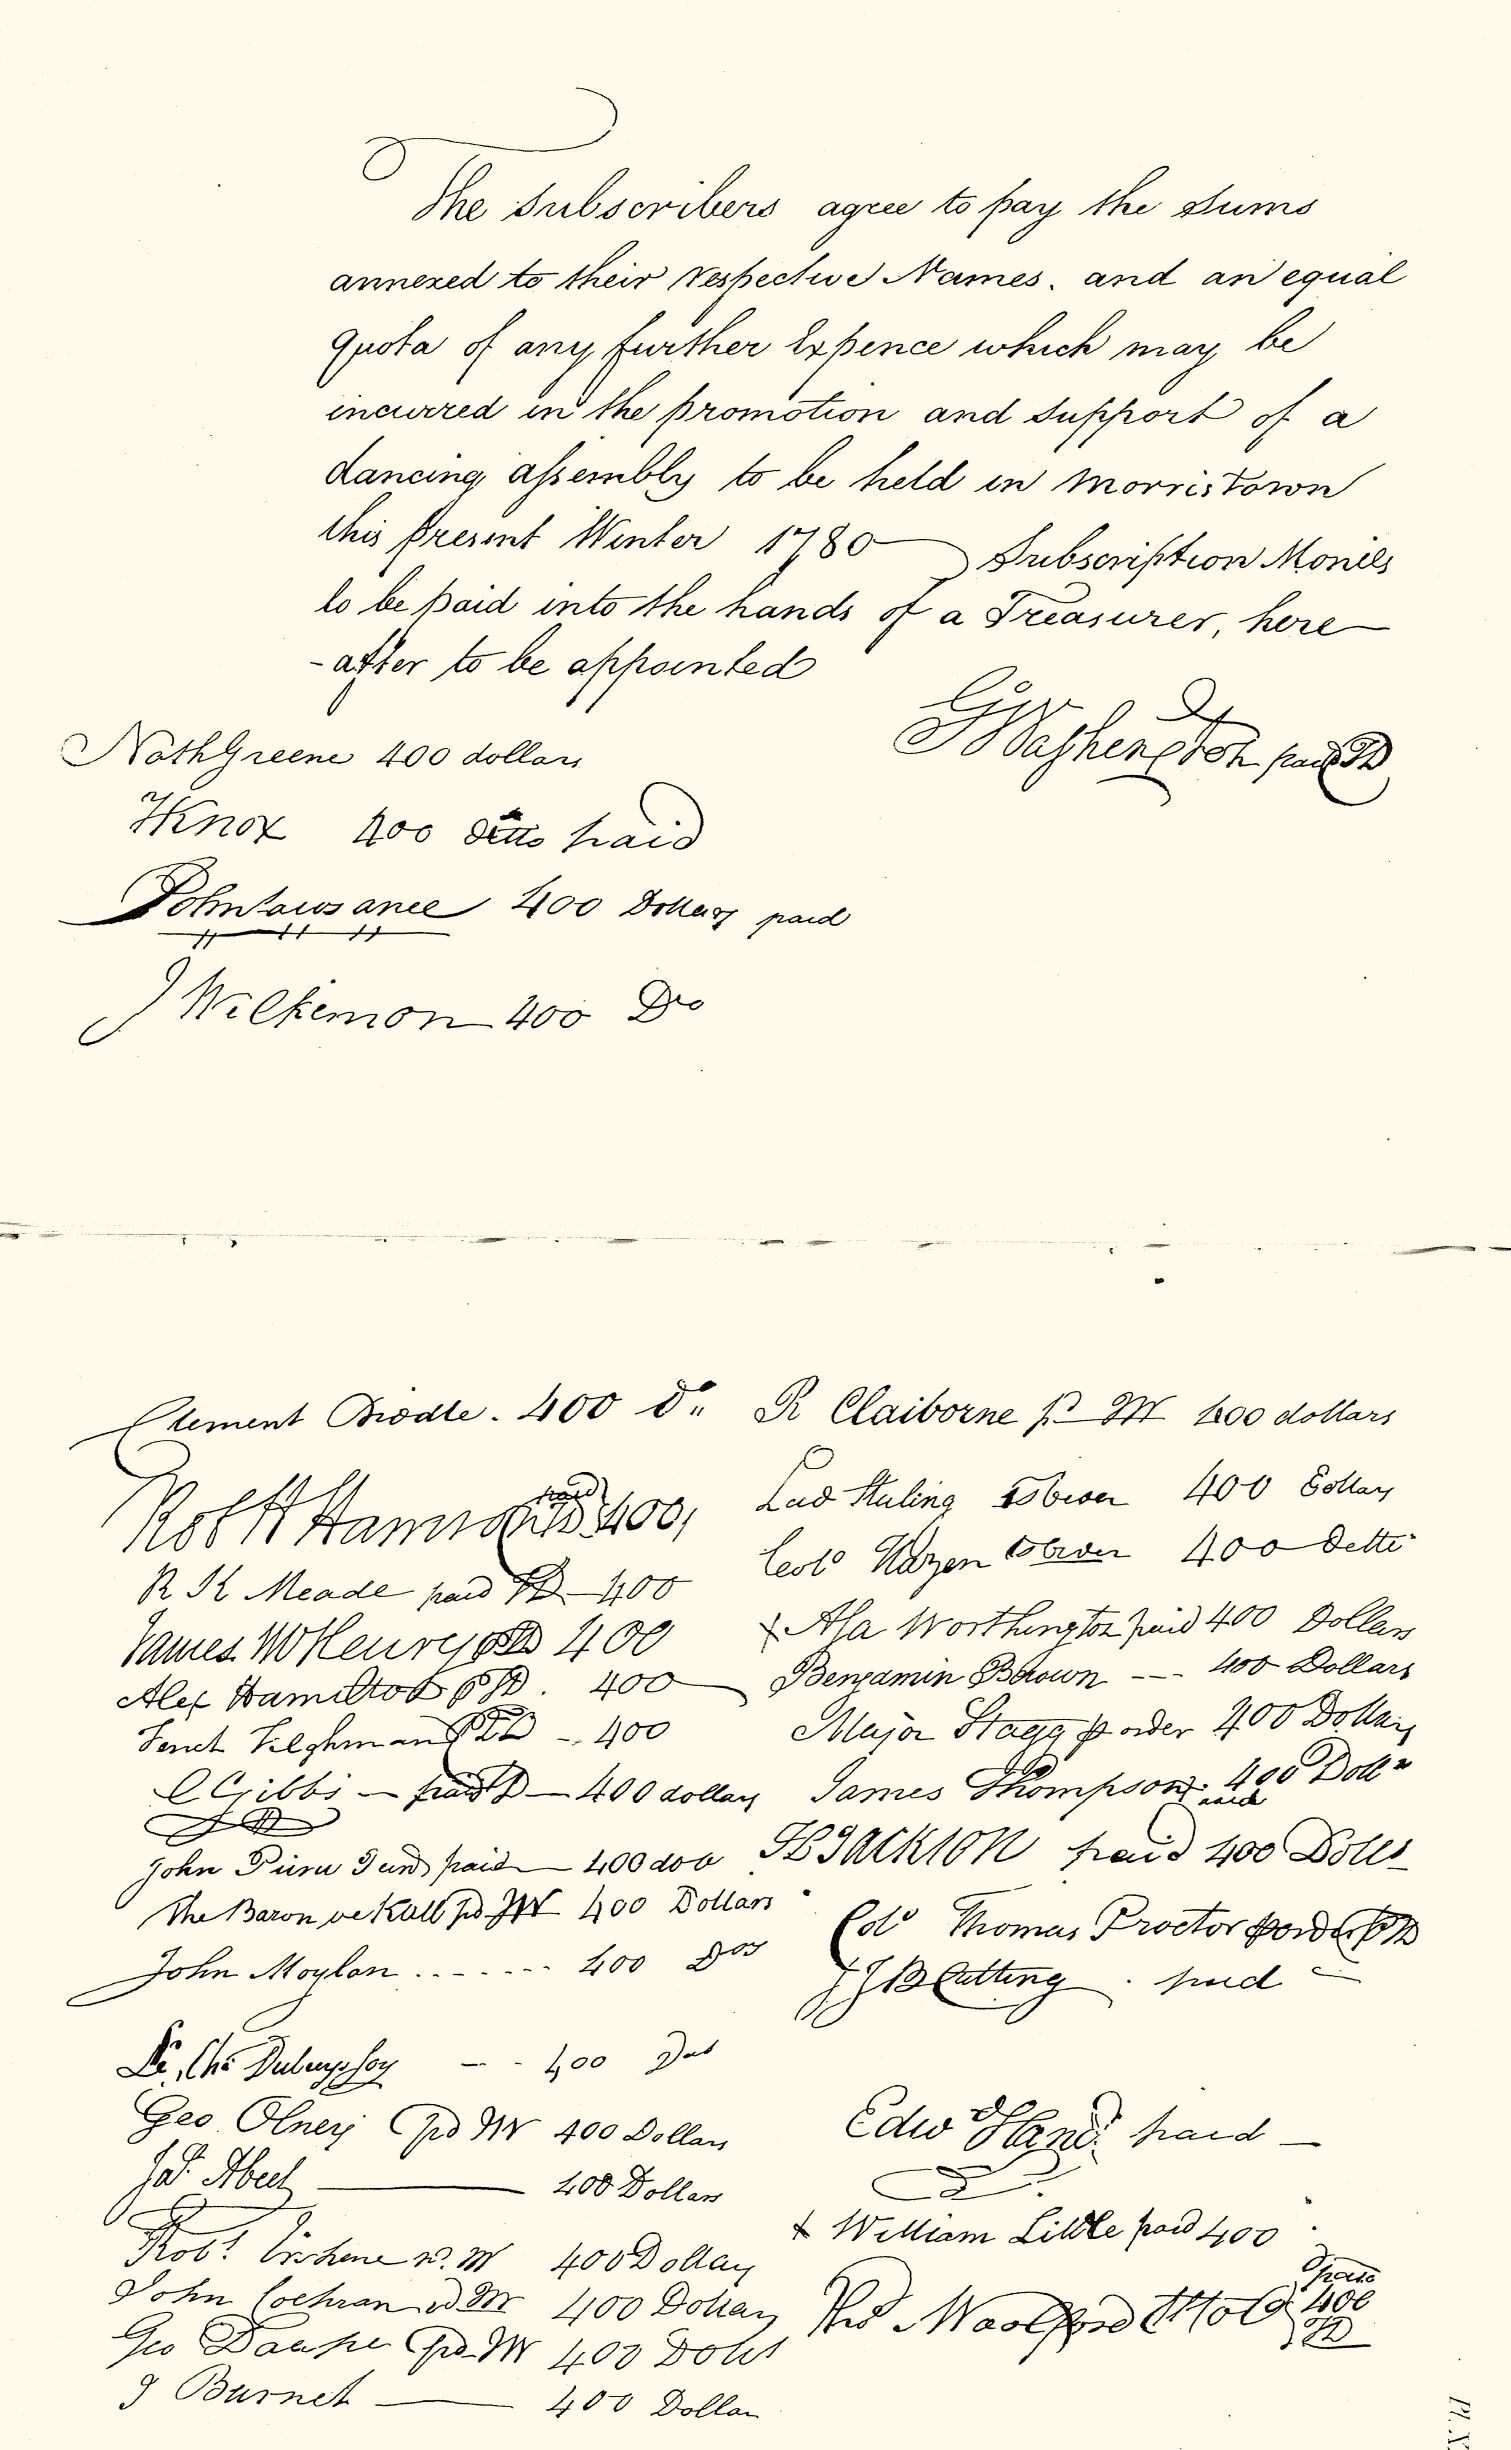 The Subscribers agree to pay the Sums
annexed to their respective Names. and an equal
quota of any further Expence which may be
incurred in the promotion and Support of a
dancing assembly to be held in Morristown
this present Winter 1780 Subscription Monies
to be paid into the hands of a Treasurer, here
-after to be appointed
GWashington paid
NathGreene 400 dollars
HKnox 400 ditto paid
John 400 Dollars paid
J Wilkinson 400 Do
Clement Biddle. 400 Do
Robt H Harrison paid 400,
R K Meade paid 400
James McHenry pd 400
Alex Hamilton pd. 400
Tench Tilghman pd - 400
C Gibbs - paid - 400 dollars
John Pierce Junr paid 400 doo
The Baron de Kalb pd 400 Dollars
John Moylan ........ 400 Dos
400 Dos
Geo Olney pd 400 Dollars
Ja. Abeel 400 Dollars
Robt Erskine 400 Dollars
John Cochran 400 Dollars
Geo Draper pd 400 Dolls
J Burnet 400 Dollars
R Claiborne 400 dollars
Lord Stirling 400 Dollars
Colo Hazen 400 ditto
Asa Worthington paid 400 Dollars
Benjamin Brown --- 400 Dollars
Major Stagg pr order 400 Dollars
James Thompson. 400 Dolls
paid
HJackson paid 400 Dolls
Colo Thomas Proctor
JB Cutting. paid
Edw Hand. paid
+ William Little paid 400
Thos Woolford
paid
400